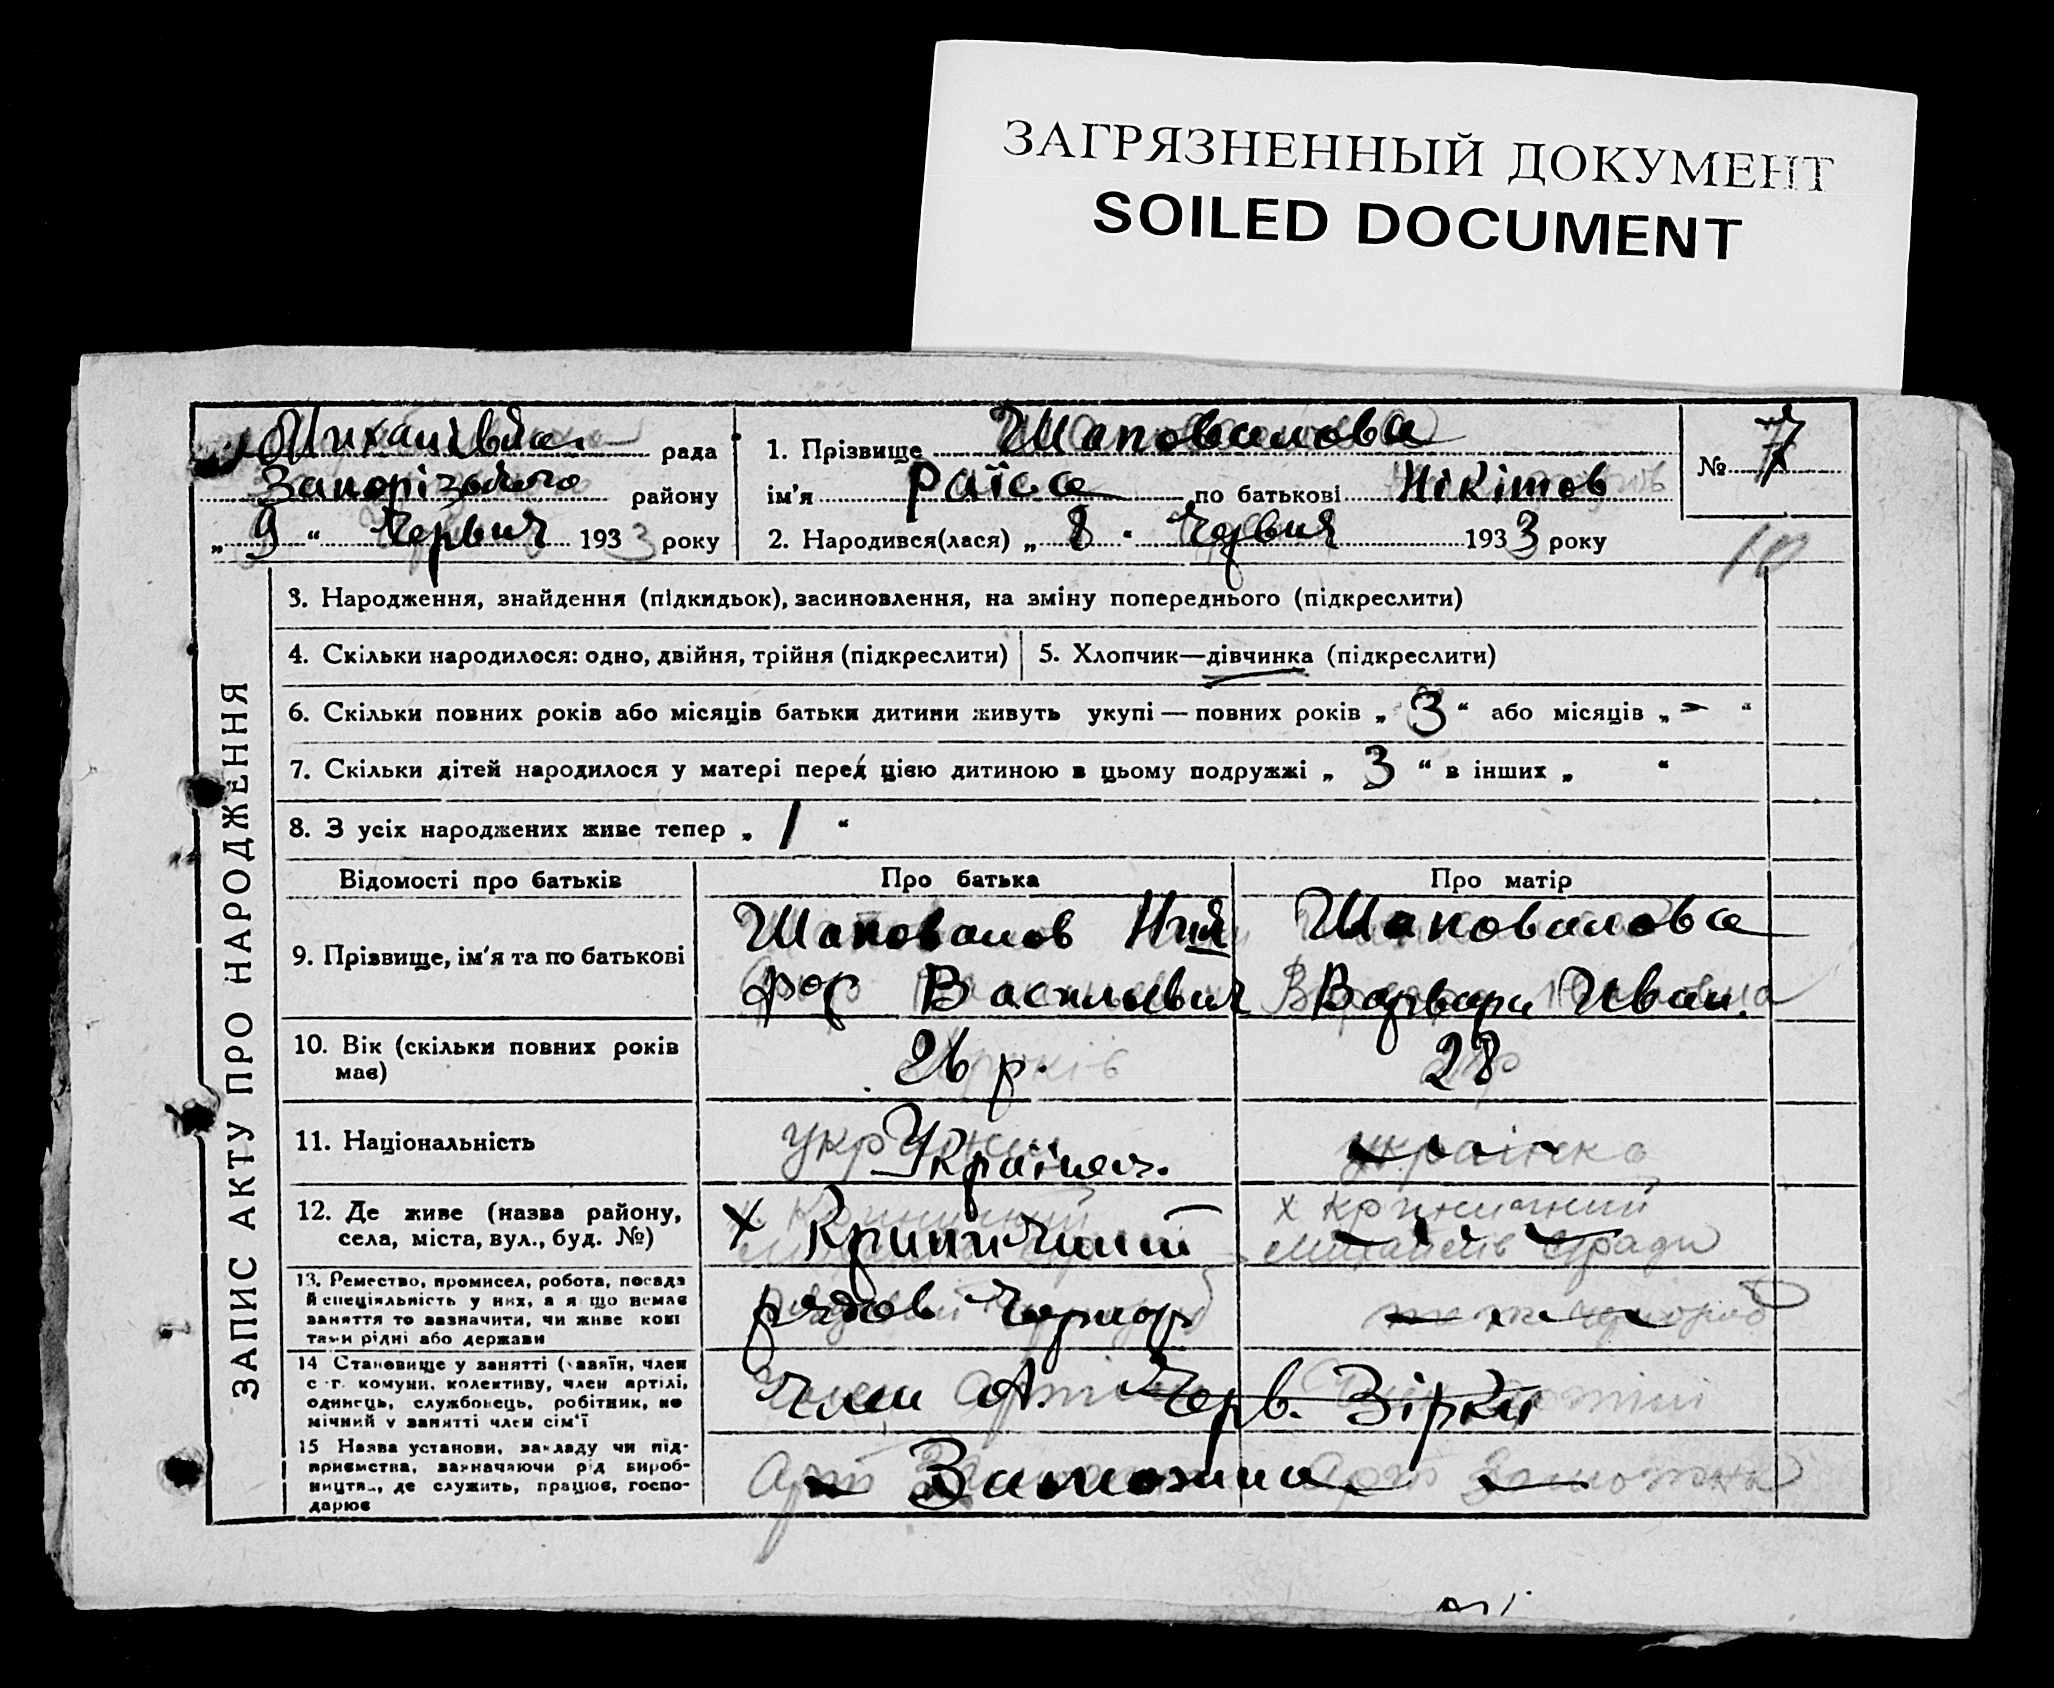 ЗАГРЯЗНЕННЫЙ ДОКУМЕНТ
SOILED DOCUMENT
Михайлівка рада
Запорізького району
„ 9 “ Червня 1933 року
1. Прізвище Шаповалова
ім'я Раїса по батькові Нікітов
2. Народився(лася) „ 8 " Червня 1933 року
№ 7
10
ЗАПИС АКТУ ПРО НАРОДЖЕННЯ
3. Народження, знайдення (підкидьок), засиновлення, на зміну попереднього (підкреслити)
4. Скільки народилося: одно, двійня, трійня (підкреслити)
5. Хлопчик—дівчинка (підкреслити)
6. Скільки повних років або місяців батьки дитини живуть укупі — повних років „ 3 “ або місяців „ - “
7. Скільки дітей народилося у матері перед цією дитиною в цьому подружжі „ 3 “ в інших „ “
8. З усіх народжених живе тепер „ 1 “
Відомості про батьків Про батька Про матір
9. Прізвище, ім'я та по батькові
Шаповалов Ники
фор Васильевич
Шаповалова
Варвара Иван.
10. Вік (скільки повних років
має)
26 р.
28
11. Національність
Українец.
українка
12. Де живе (назва району,
села, міста, вул., буд. №)
х Криничний
х криничний
ради
13. Ремество, промисел, робота, посада
й спеціяльність у них, а якщо немає
заняття то зазначити, чи живе кош
тами рідні або держави
рядов чорнор
14 Становище у занятті (хазяїн, член
с.-г. комуни, колективу, член артілі,
одинець, службовець, робітник, по
мічний у занятті член сім'ї
Член А. Черв. Зірки
15 Назва установи, закладу чи під-
приємства, зазначаючи рід вироб-
ництва, де служить, працює, госпо-
дарює
Заможна
Арт Заможна